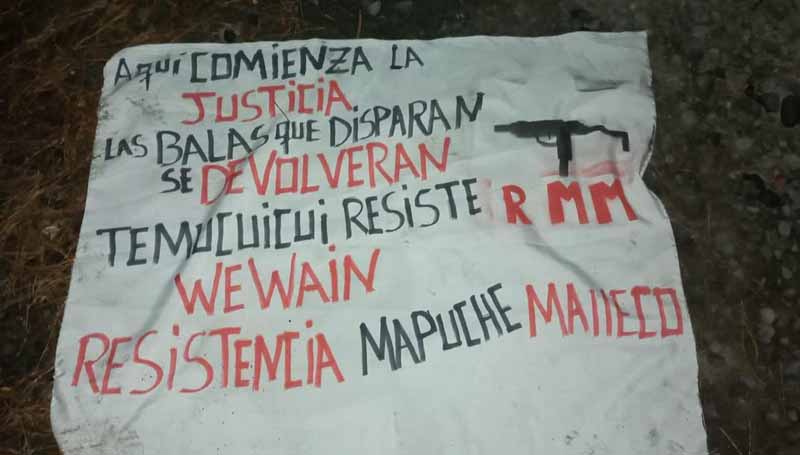 Aquí COMiENZA LA
JUSTiCiA
LAS BALAS QUE DiSPARAN
SE DEVOLVERAN
TEMUCUiCUi RESISTE RMM
WEWAiN
RESiSTENCiA MAPUCHE MAllECO